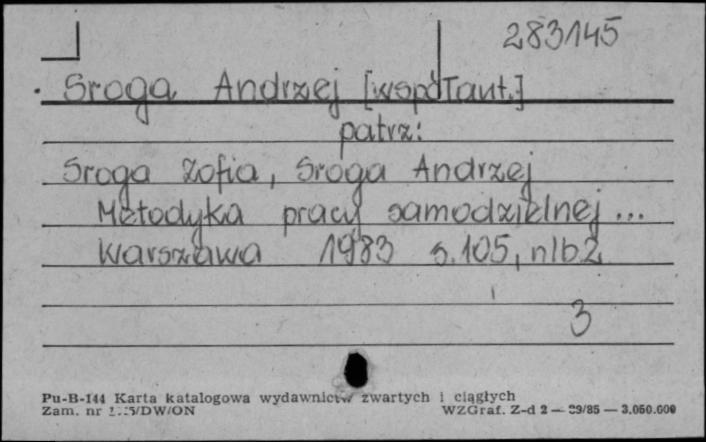 283145
Sroga Andrzej [współaut.]
patrz:
Sroga Zofia, Sroga Andrzej
Metodyka pracy samodzielnej...
Warszawa 1983 s.105, nlb2
3
Pu-B-144 Karta katalogowa wydawnictw zwartych i ciągłych
Zam. nr WZGraf. Z-d 2 — 29/85 — 3.050.000